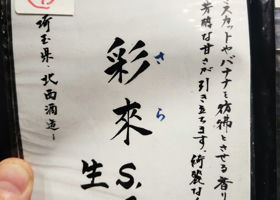 スカットやバナナを彷彿とさせる香り
芳醇な甘さが引き立ちます。綺麗な
さら
彩來 S.
生
埼玉県・北西酒造